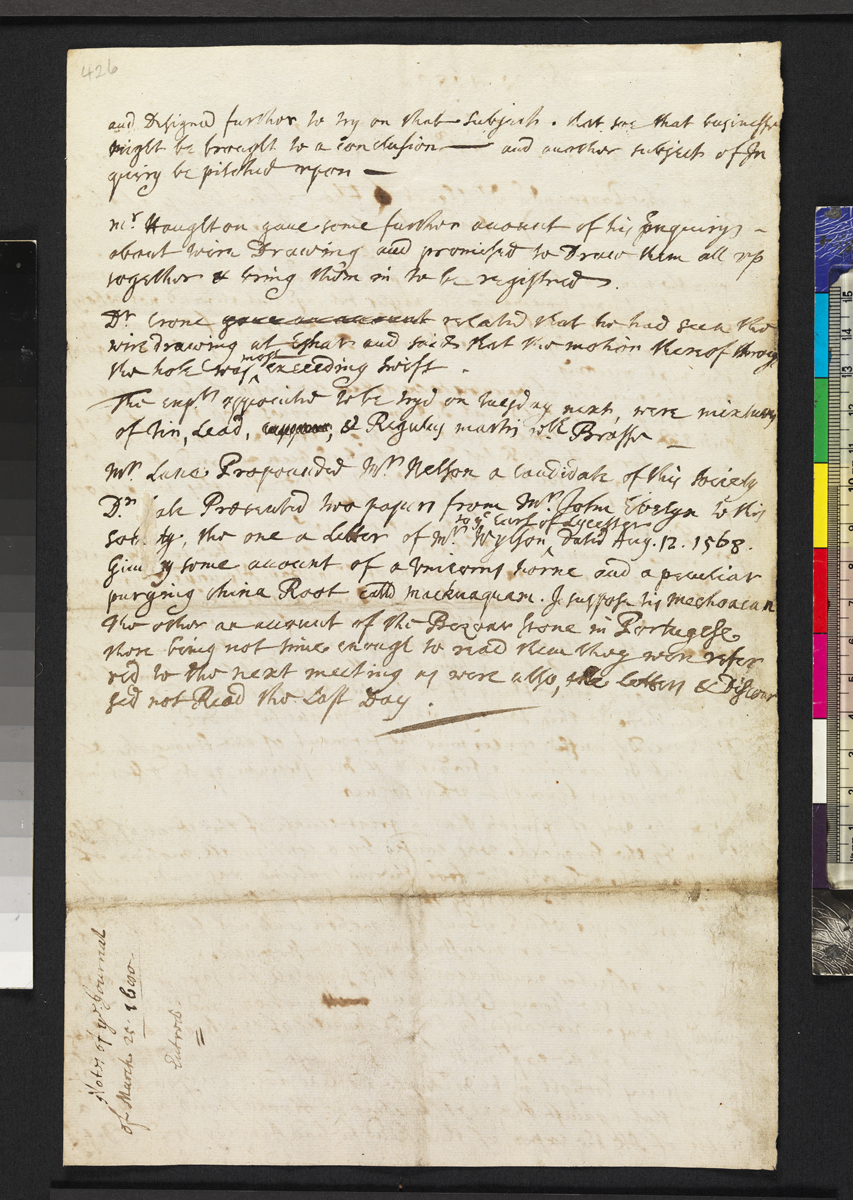 426
and Designed further to try on that subject. that soe that businesse
might be brought to a conclusion — and another subject of In
quiry be pitched upon —
mr. Haughton gave some further account of his Enquirys –
about wire Drawing and promised to Draw them all up
together & bring them in to be registred.
Dr Crone gave an account related that he had seen the
wiredrawing at Eshar and said that the motion thereof throug
the hole was most exceeding swift.
The expts appointed to be tryd on tuesday next, were mixtures
of tin, Lead, & Regulus martis wth Brasse —
Mr. Lane Propounded Mr Nelson a candidate of this society
Dr. Presented two papers from Mr. John Evelyn to this
the one a Letter of Mr. Wylson to ye Earl of Lycester dated Aug. 12. 1568.
some account of a Unicorns horne and a peculiar
purging china Root calld mackuaquam. I suppose tis mechoacan
the other an account of the Bezoar stone in Portugese.
there being not time enough to read them they were refer
red to the next meeting as were also, the Letters & Discour
ses not Read the Last Day.
Notes of ye Journal
of March 25. 1680.
Entred.